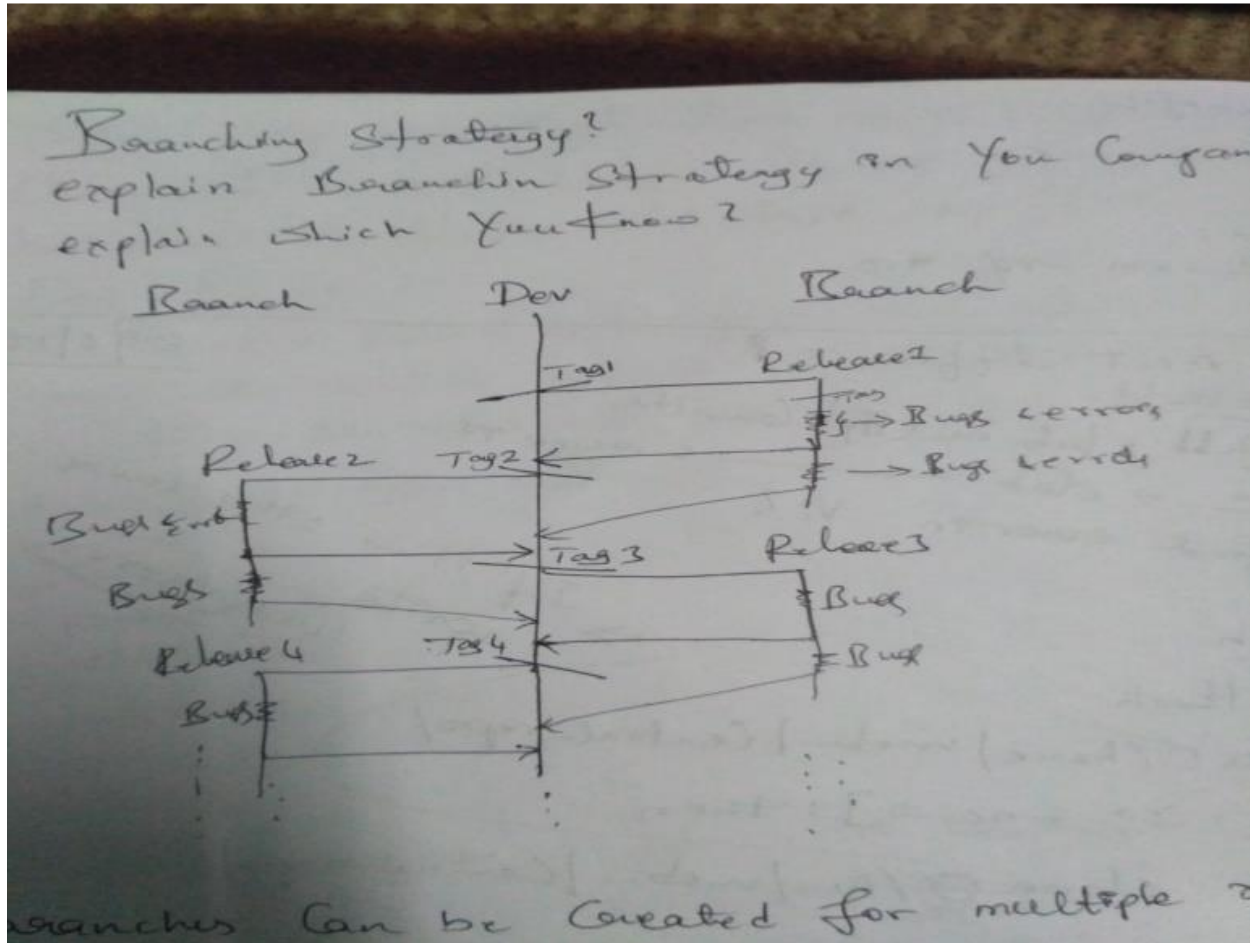 Branching Stratergy?
explain Branchin Stratergy in You Compan
explain which You know?
Branch Dev Branch
Tag1 Release1
Tag
Bugs & errors
Release2 Tag2 Bugs & errors
Bugs
Tag3 Release3
Bugs Bugs
Release4 Tag4 Bugs
Bugs
branches Can be Created for multiple